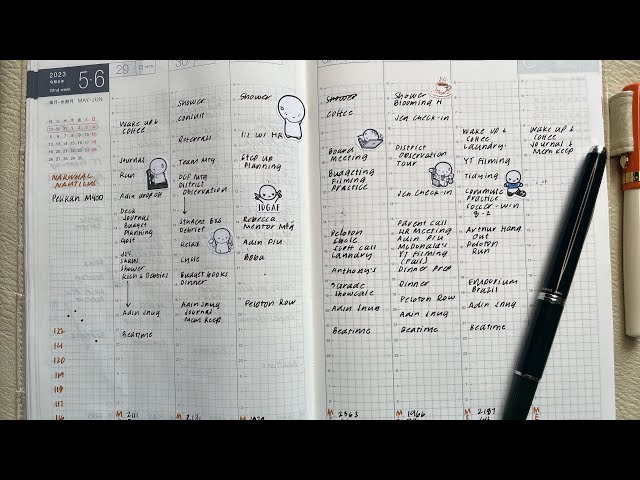 2023
22nd week
5·6
MAY·JUN
29
30
NARWHAL
NAUTILUS
Pelikan M400
122
121
120
119
118
117
116
Wake up &
Coffee
Journal
Run
Adin drop off
Desk
Journal
Budget
Planning
Edit
Shower
Adin Snug
Bedtime
M 2111
Shower
Referrals
Team Mtg
District
Observation
Student BXG
Debrief
Relax
Cycle
Budget books
Dinner
Adin Snug
Journal
Mem Keep
Shower
1:1 w/ HR
Step Up
Planning
IDGAF
Rebecca
Mentor Mtg
Adin P/U
Boba
Peloton Row
Shower
Coffee
Board
Meeting
Budgeting
Filming
Practice
Peloton
Cycle
Laundry
Anthony's
Showcase
Adin Snug
Bedtime
M 2363
Shower
Blooming H
Jen Check-in
District
Observation
Tour
Jen Check-in
Parent Call
HR Meeting
Adin P/U
McDonalds
YT Filming
(Fail)
Dinner Prep
Dinner
Peloton Row
Adin Snug
Bedtime
M 1966
Wake up &
Coffee
Laundry
YT Filming
Tidying
Commute
Practice
Soccer-Win
8-2
Arthur Hang
Out
Peloton
Run
Emporium
Brazil
Adin Snug
Bedtime
M 2187
Wake up &
Coffee
Journal &
Mem Keep